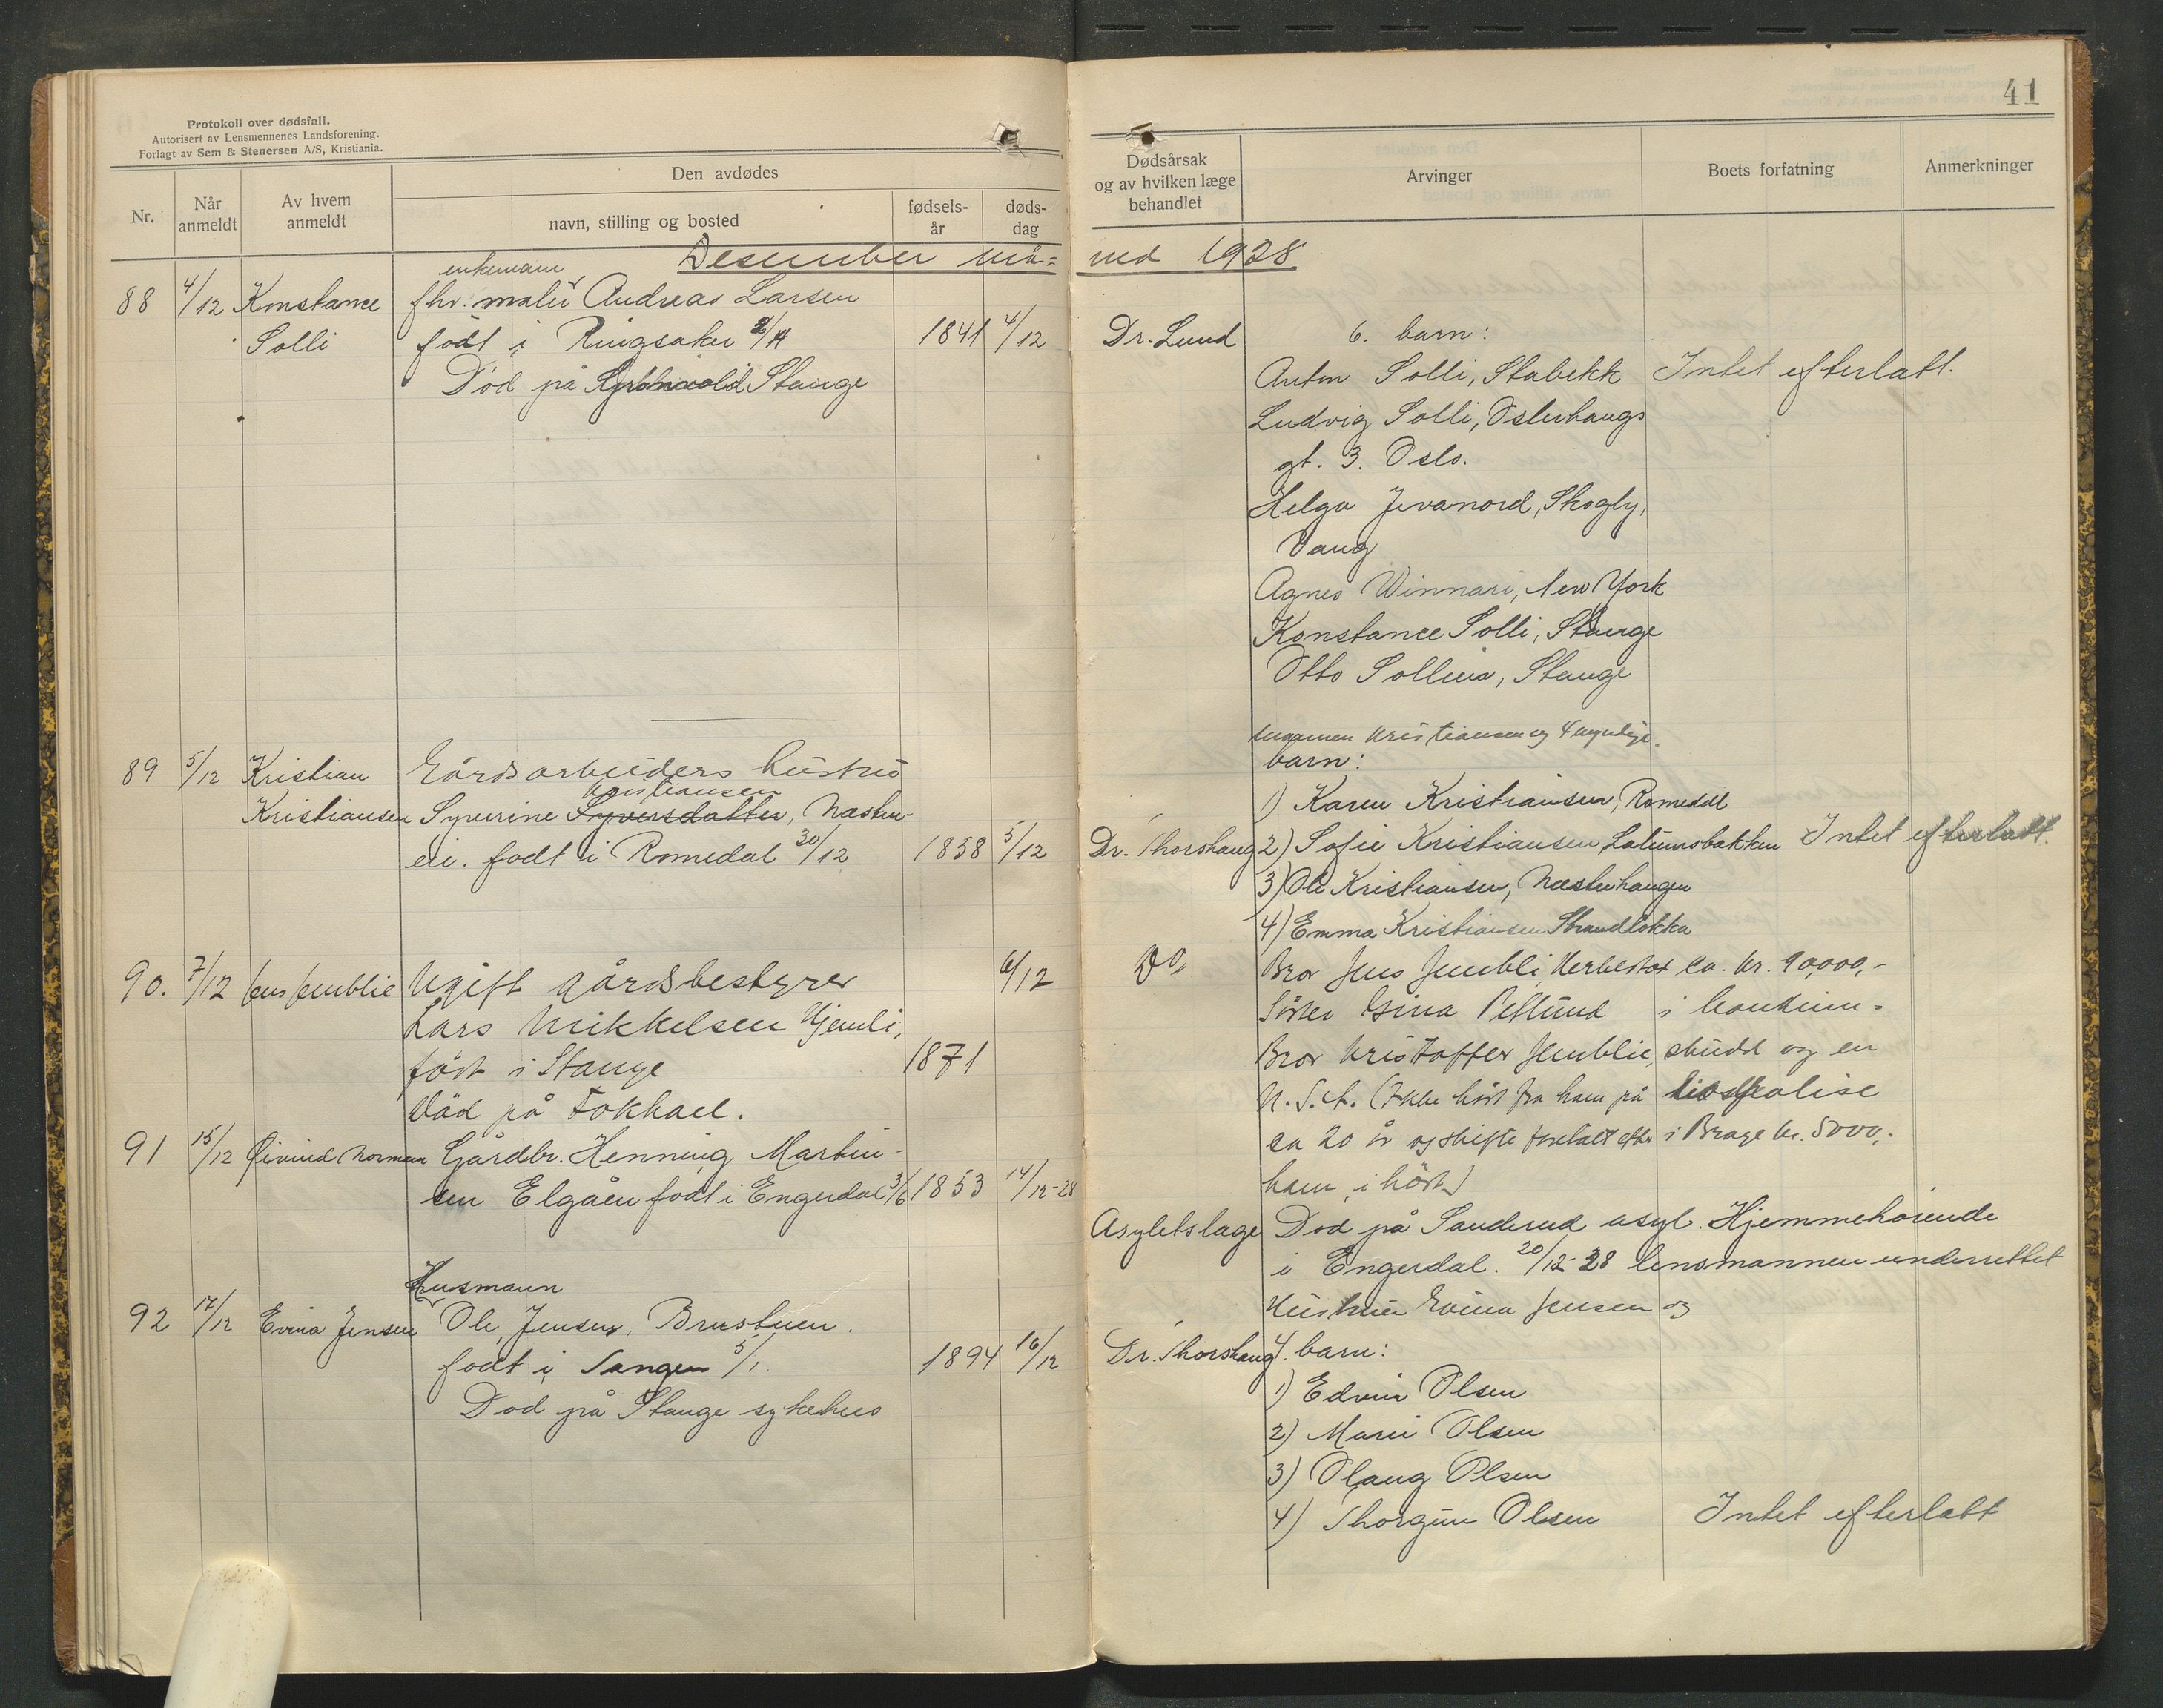 Protokoll over dødsfall.
Autorisert av Lensmennenes Landsforening.
Forlagt av Sem & Stenersen A/S, Kristiania.
Nr.
Når anmeldt
Av hvem anmeldt
Den avdødes
navn, stilling og bosted
fødsels-
år
døds-
dag
Desember må=
88 4/12 Konstance
Solli
enkemann
fhv. maler Andreas Larsen
født i Ringsaker
1841 4/12
Død på Stange
89 5/12 Kristian
Kristiansen
Gårdsarbeiders hustru
Kristiansen
Syverine Syversdatter, Næsten-
eie. født i Romedal 30/12
1858 5/12
90. 7/12 Jens Jemblie
Ugift gårdsbestyrer
6/12
Lars Mikkelsen Hjemli,
født i Stange
1871
Död på Fokhael.
91 15/12 Øivind Norman
Gårdbr. Henning Martin-
sen Elgåen født i Engerdal 3/6
1853 14/12-28
Husmann
92 17/12 Evina Jensen
Ole Jensen, Brustuen.
født i Tangen 5/1.
1894 16/12
Død på Stange sykehus
41
Dødsårsak
og av hvilken læge
behandlet
Arvinger
Boets forfatning
Anmerkninger
ned 1928
Dr. Lund
6. barn:
Anton Solli, Stabekk Intet efterlatt.
Ludvig Solli, Østerhaugs
gt. 3. Oslo.
Helga Jevanord, Skogly,
Vang
Agnes Winnari, New York
Konstance Solli, Stange
Otto Sollien, Stange
Kristiansen og 4 myndige
barn:
1) Karen Kristiansen, Romedal
Dr. Thorshaug 2) Sofie Kristiansen, Intet efterlatt.
3) Ole Kristiansen, Næstenhaugen
4) Emma Kristiansen Strandløkka
Do,
Bror Jens Jembli, ca. kr. 90,000,-
Söster Gina i kontium=
Bror Kristoffer Jemblie, skudd og en
U.S.A. (Ikke hört fra ham på livspolise
ca 20 år og skifte foretatt efter i Brage kr. 5000,-
ham i höst)
Asyletslæge Død på Sanderud asyl. Hjemmehørende
i Engerdal. 20/12-28 lensmannen underrettet
Hustruen Evina Jensen og
Dr. Thorshaug 4. barn:
1) Edvin Olsen
2) Marie Olsen
3) Olaug Olsen
4) Thorgun Olsen Intet efterlatt